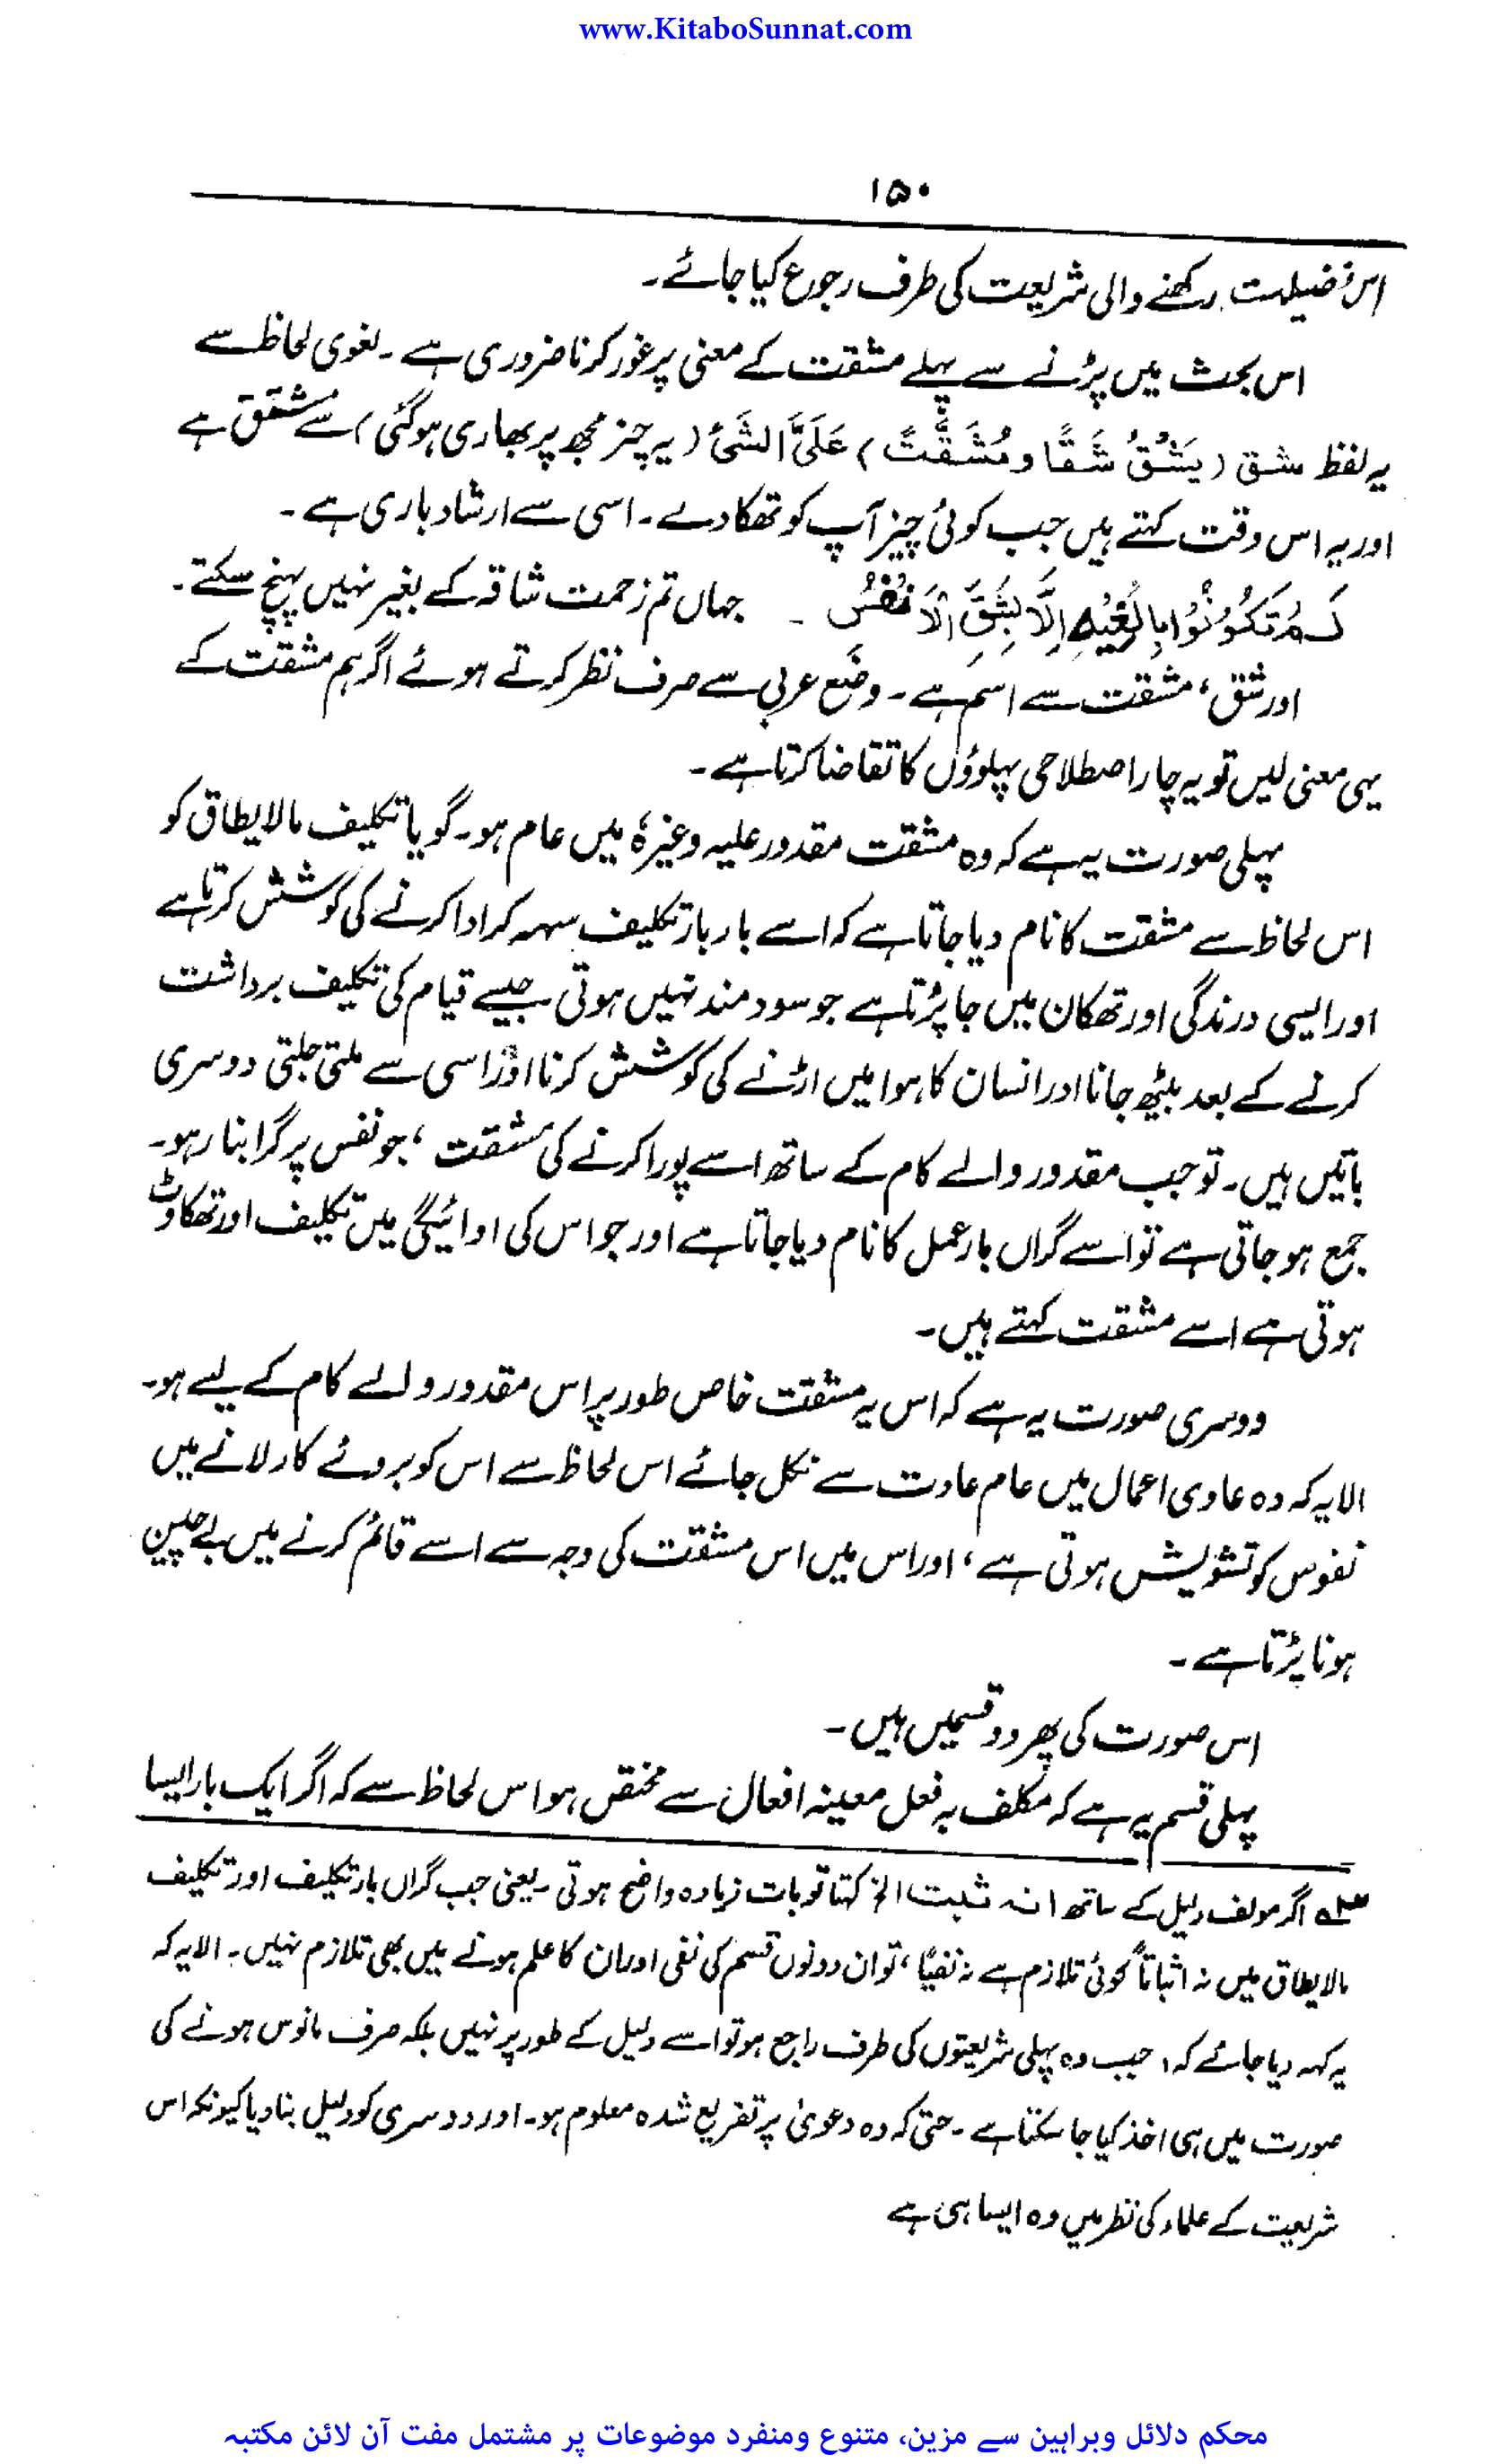 www.KitaboSunnat.com
۱۵۰
اس فضیلت رکھنے والی شریعت کی طرف رجوع کیا جائے۔
اس بحث میں پڑنے سے پہلے مشقت کے معنی پر غور کرنا ضروری ہے۔ لغوی لحاظ سے
یہ لفظ شق (یَشُقُّ شَقًّا ومُشَقَّتً) عَلَیَّ الشَیْءُ (یہ چیز مجھ پر بھاری ہوگئی) سے مشتق ہے
اور یہ اس وقت کہتے ہیں جب کوئی چیز آپ کو تھکا دے۔ اسی سے ارشاد باری ہے۔
لَمْ تَكُوْنُوْا بِالِغِيْهِ اِلَّا بِشِقِّ الْاَنْفُسِ۔ جہاں تم زحمت شاقہ کے بغیر نہیں پہنچ سکتے۔
اور شق، مشقت سے اسم ہے۔ وضع عربی سے صرف نظر کرتے ہوئے اگر ہم مشقت کے
یہی معنی لیں تو یہ چار اصطلاحی پہلوؤں کا تقاضا کرتا ہے۔
پہلی صورت یہ ہے کہ وہ مشقت مقدور علیہ وغیرہٗ میں عام ہو۔ گویا تکلیف مالایطاق کو
اس لحاظ سے مشقت کا نام دیا جاتا ہے کہ اسے بار بار تکلیف سہہ کر ادا کرنے کی کوشش کرتا ہے
اور ایسی درندگی اور تھکان میں جا پڑتا ہے جو سود مند نہیں ہوتی جیسے قیام کی تکلیف برداشت
کرنے کے بعد بیٹھ جانا اور انسان کا ہوا میں اڑنے کی کوشش کرنا اور اسی سے ملتی جلتی دوسری
باتیں ہیں۔ تو جب مقدور والے کام کے ساتھ اسے پورا کرنے کی مشقت، جو نفس پر گرانبار ہو۔
جمع ہو جاتی ہے تو اسے گراں بار عمل کا نام دیا جاتا ہے اور جو اس کی ادائیگی میں تکلیف اور تھکاوٹ
ہوتی ہے اسے مشقت کہتے ہیں۔
دوسری صورت یہ ہے کہ اس یہ مشقت خاص طور پر اس مقدور والے کام کے لیے ہو۔
الا یہ کہ وہ عادی اعمال میں عام عادت سے نکل جائے اس لحاظ سے اس کو بروئے کار لانے میں
نفوس کو تشویش ہوتی ہے، اور اس میں اس مشقت کی وجہ سے اسے قائم کرنے میں بے چین
ہونا پڑتا ہے۔
اس صورت کی پھر دو قسمیں ہیں۔
پہلی قسم یہ ہے کہ مکلف بہ فعل معینہ افعال سے مختص ہو اس لحاظ سے کہ اگر ایک بار ایسا
اگر مولف دلیل کے ساتھ انہ ثبت الخ کہتا تو بات زیادہ واضح ہوتی۔ یعنی جب گراں بار تکلیف اور تکلیف
مالایطاق میں نہ اثباتاً کوئی تلازم ہے نہ نفیًا، تو ان دونوں قسم کی نفی اور ان کا علم ہونے میں بھی تلازم نہیں۔ الا یہ کہ
یہ کہہ دیا جائے کہ، جب وہ پہلی شریعتوں کی طرف راجع ہو تو اسے دلیل کے طور پر نہیں بلکہ صرف مانوس ہونے کی
صورت میں ہی اخذ کیا جا سکتا ہے۔ حتیٰ کہ وہ دعویٰ پر تفریع شدہ معلوم ہو۔ اور دوسری کو دلیل بنا دیا کیونکہ اس
شریعت کے علماء کی نظر میں وہ ایسا ہی ہے
محکم دلائل وبراہین سے مزین، متنوع ومنفرد موضوعات پر مشتمل مفت آن لائن مکتبہ